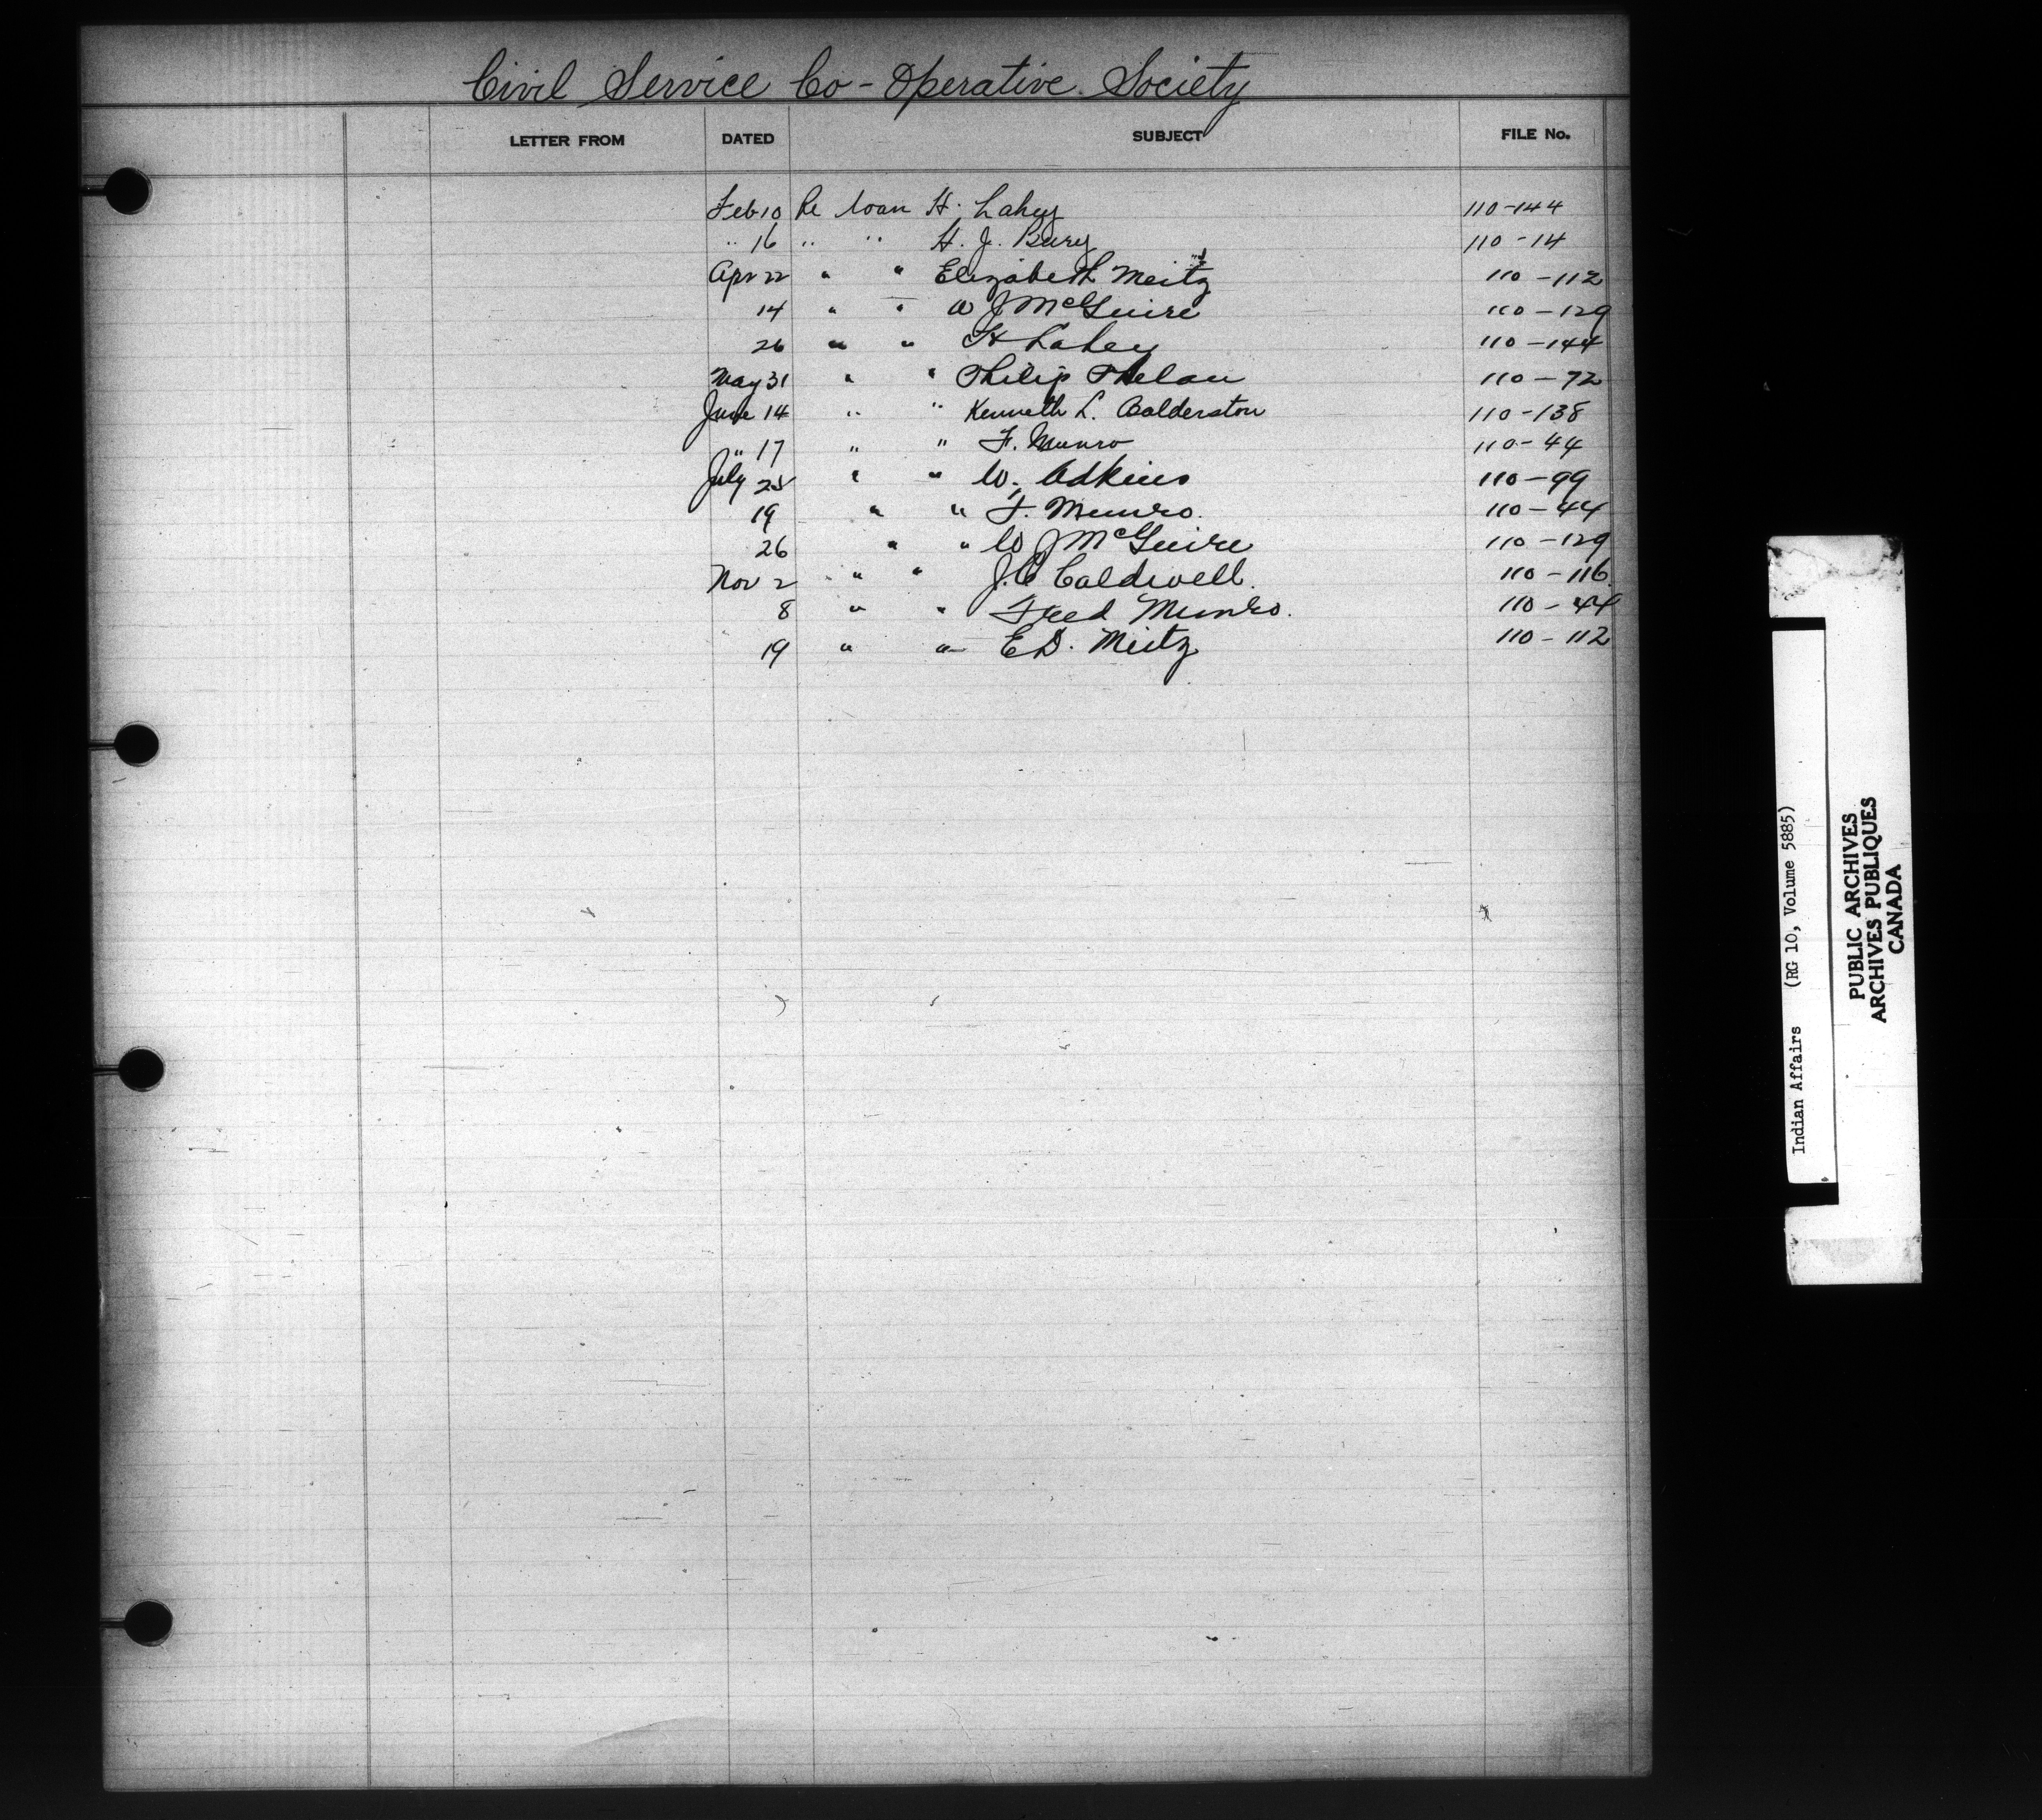 Civil Service Co-Operative Society
LETTER FROM DATED SUBJECT FILE No.
Feb 10 Re loan H. Lahey 110-144
" 16 " " H. J. Bury 110-14
Apr 22 " " Elizabeth Meitz 110-112
14 " " W J McGuire 110-129
26 " " H Lahey 110-144
May 31 " " Philip Phelan 110-72
June 14 " " Kenneth L. Calderston 110-138
" 17 " " F. Munro 110-44
July " " W. Adkins 110-99
19 " " F. Munro. 110-44
26 " " W J McGuire 110-129
Nov 2 " " J.C Caldwell. 110-116
8 " " Fred Munro. 110-44
19 " " E D. Meitz 110-112
Indian Affairs (RG 10, Volume 5885)
PUBLIC ARCHIVES
ARCHIVES PUBLIQUES
CANADA